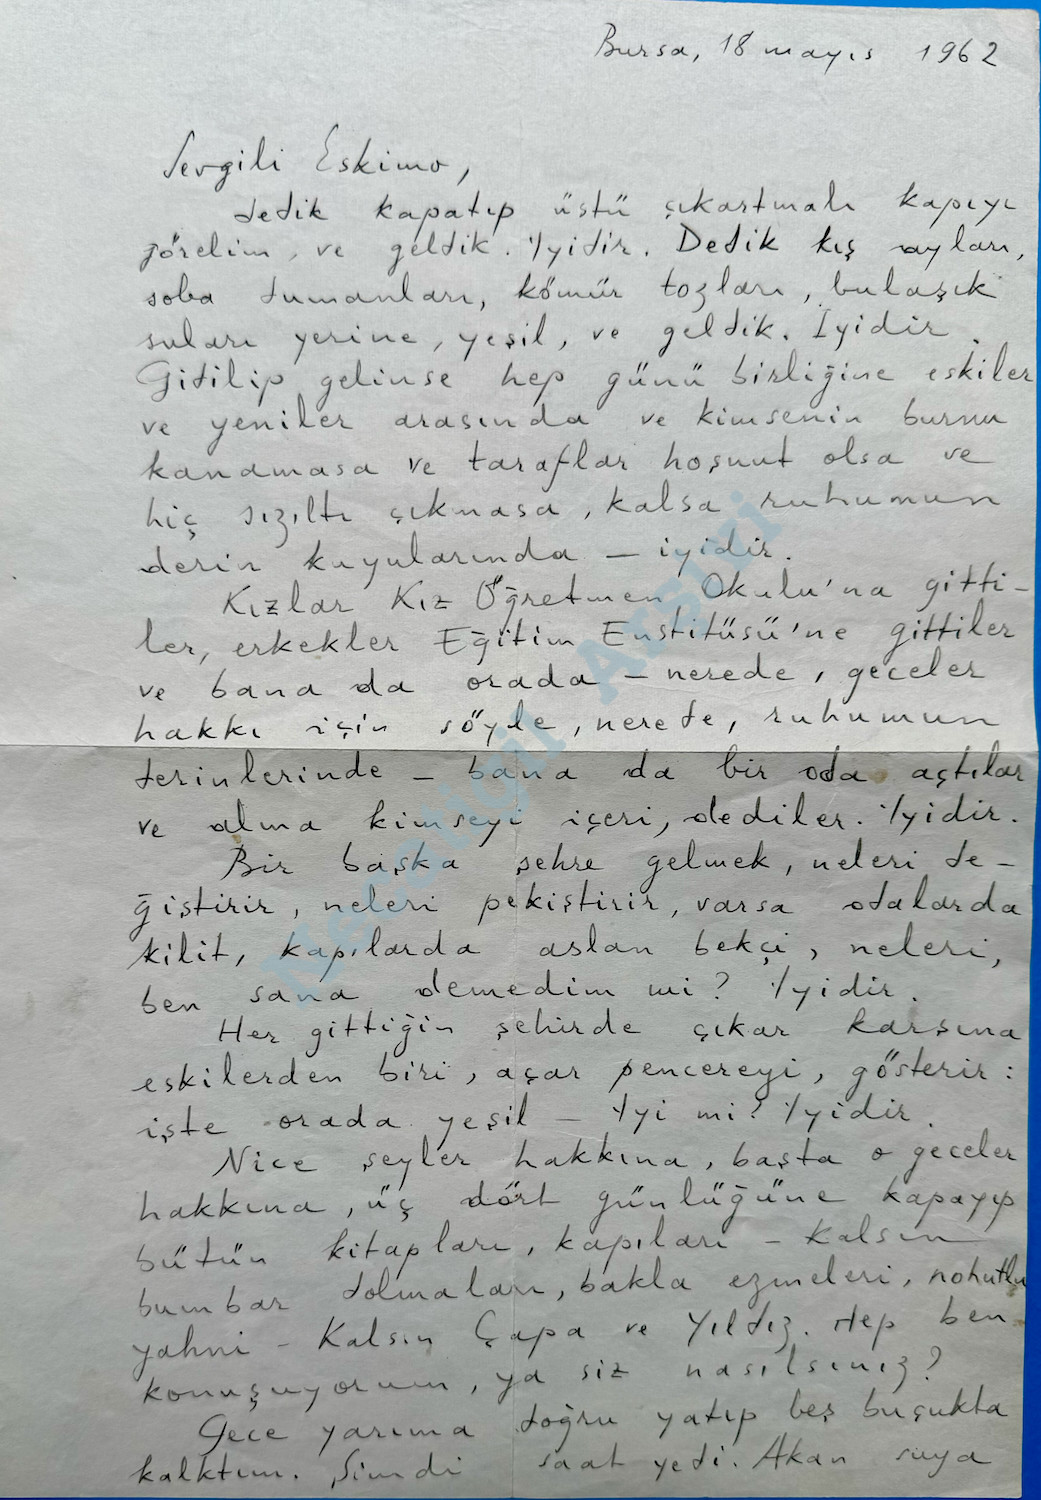 Bursa, 18 mayıs 1962
Sevgili Eskimo,
dedik kapatıp üstü çıkartmalı kapıyı
görelim, ve geldik. İyidir. Dedik kış ayları,
soba dumanları, kömür tozları, bulaşık
suları yerine, yeşil, ve geldik. İyidir.
Gidilip gelinse hep günü birliğine eskiler
ve yeniler arasında ve kimsenin burnu
kanamasa ve taraflar hoşnut olsa ve
hiç sızıltı çıkmasa, kalsa ruhumun
derin kuyularında — iyidir.
Kızlar Kız Öğretmen Okulu'na gitti-
ler, erkekler Eğitim Enstitüsü'ne gittiler
ve bana da orada — nerede, geceler
hakkı için söyle, nerede, ruhumun
derinlerinde — bana da bir oda açtılar
ve alma kimseyi içeri, dediler. İyidir.
Bir başka şehre gelmek, neleri de-
ğiştirir, neleri pekiştirir, varsa odalarda
kilit, kapılarda aslan bekçi, neleri,
ben sana demedim mi? İyidir.
Her gittiğin şehirde çıkar karşına
eskilerden biri, açar pencereyi, gösterir:
işte orada yeşil — İyi mi? İyidir.
Nice şeyler hakkına, başta o geceler
hakkına, üç dört günlüğüne kapayıp
bütün kitapları, kapıları — Kalsın
bumbar dolmaları, bakla ezmeleri, nohutlu
yahni — Kalsın Çapa ve Yıldız. Hep ben
konuşuyorum, ya siz nasılsınız?
Gece yarıma doğru yatıp beş buçukta
kalktım. Şimdi saat yedi. Akan suya
Necatigil Arşivi